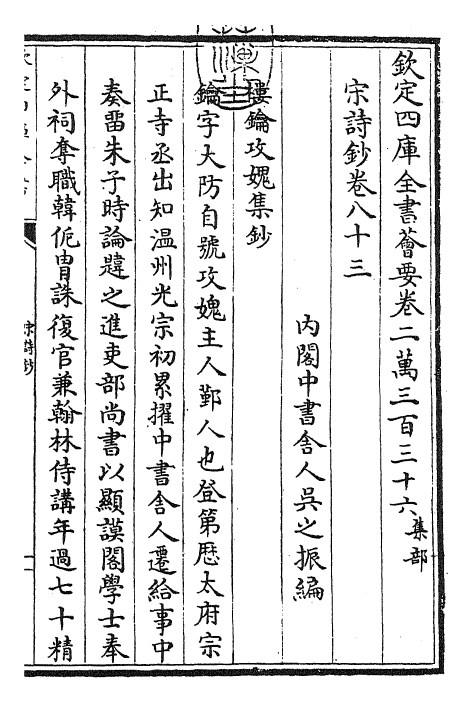 欽定四庫全書薈要卷二萬三百三十六集部
宋詩鈔卷八十三
內閣中書舍人吳之振編
樓鑰攻媿集鈔
鑰字大防自號攻媿主人鄞人也登第歷太府宗
正寺丞出知温州光宗初累擢中書舍人遷給事中
奏留朱子時論韙之進吏部尚書以顯謨閣學士奉
外祠奪職韓侂胄誅復官兼翰林侍講年過七十精
宋詩鈔
一